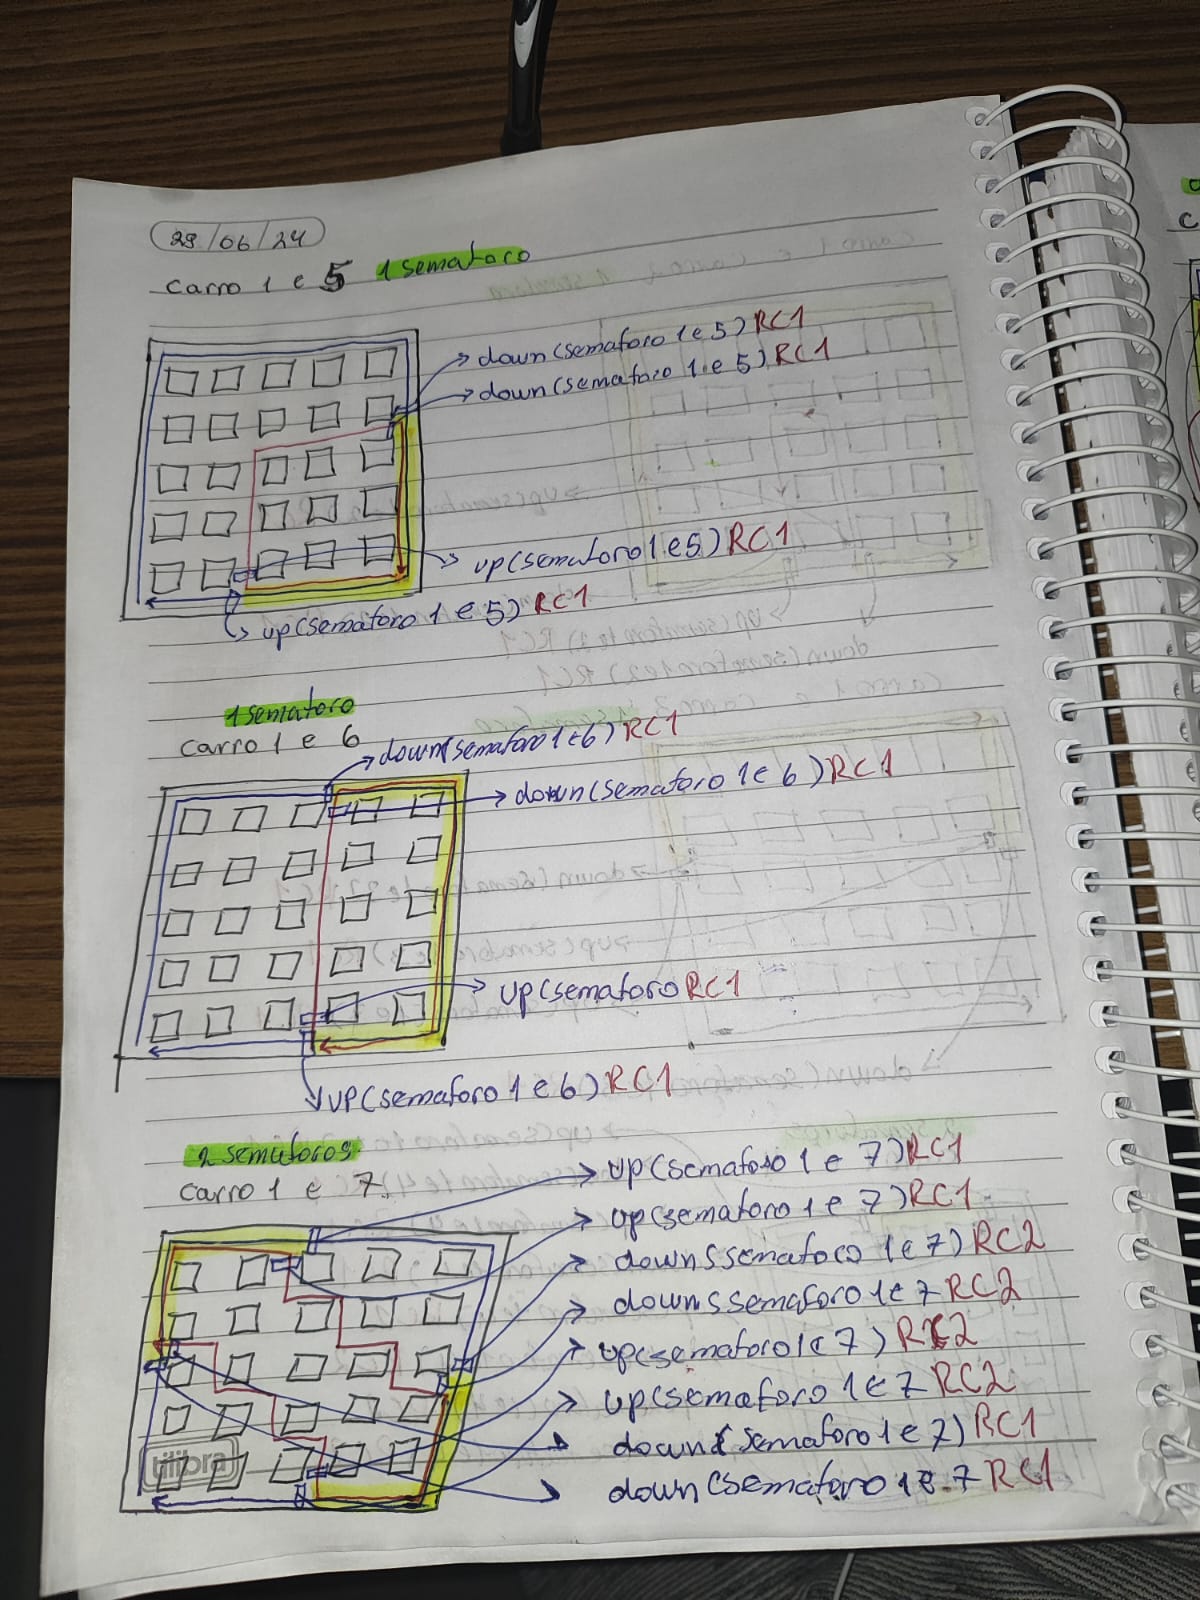 29/06/24
carro 1 e 5 1 semaforo
down(semaforo 1 e 5) RC1
down(semaforo 1 e 5) RC1
up(semaforo 1 e 5) RC1
up(semaforo 1 e 5) RC1
1 semaforo
carro 1 e 6
down(semaforo 1 e 6) RC1
down(semaforo 1 e 6) RC1
up(semaforo RC1
up(semaforo 1 e 6) RC1
2 semaforos
carro 1 e 7
up(semaforo 1 e 7) RC1
up(semaforo 1 e 7) RC1
down(semaforo 1 e 7) RC2
down(semaforo 1 e 7 RC2
up(semaforo 1 e 7) RC2
up(semaforo 1 e 7 RC2
down(semaforo 1 e 7) RC1
down(semaforo 1 e 7 RC1
tilibra